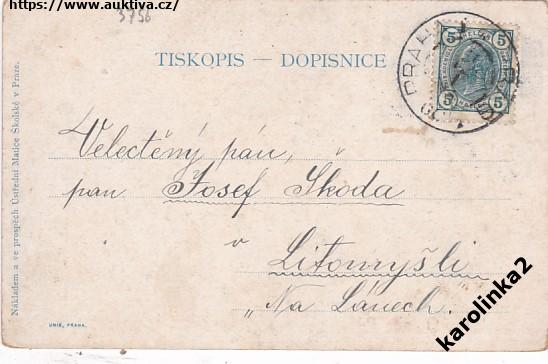 https://www.auktiva.cz/
3756
TISKOPIS — DOPISNICE
5 5
5 5
PRAHA
Velectěný pán,
pan Josef Škoda
v
Litomyšli
„Na Lánech.
Nákladem a ve prospěch Ústřední Matice Školské v Praze.
UNIE, PRAHA.
karolinka2